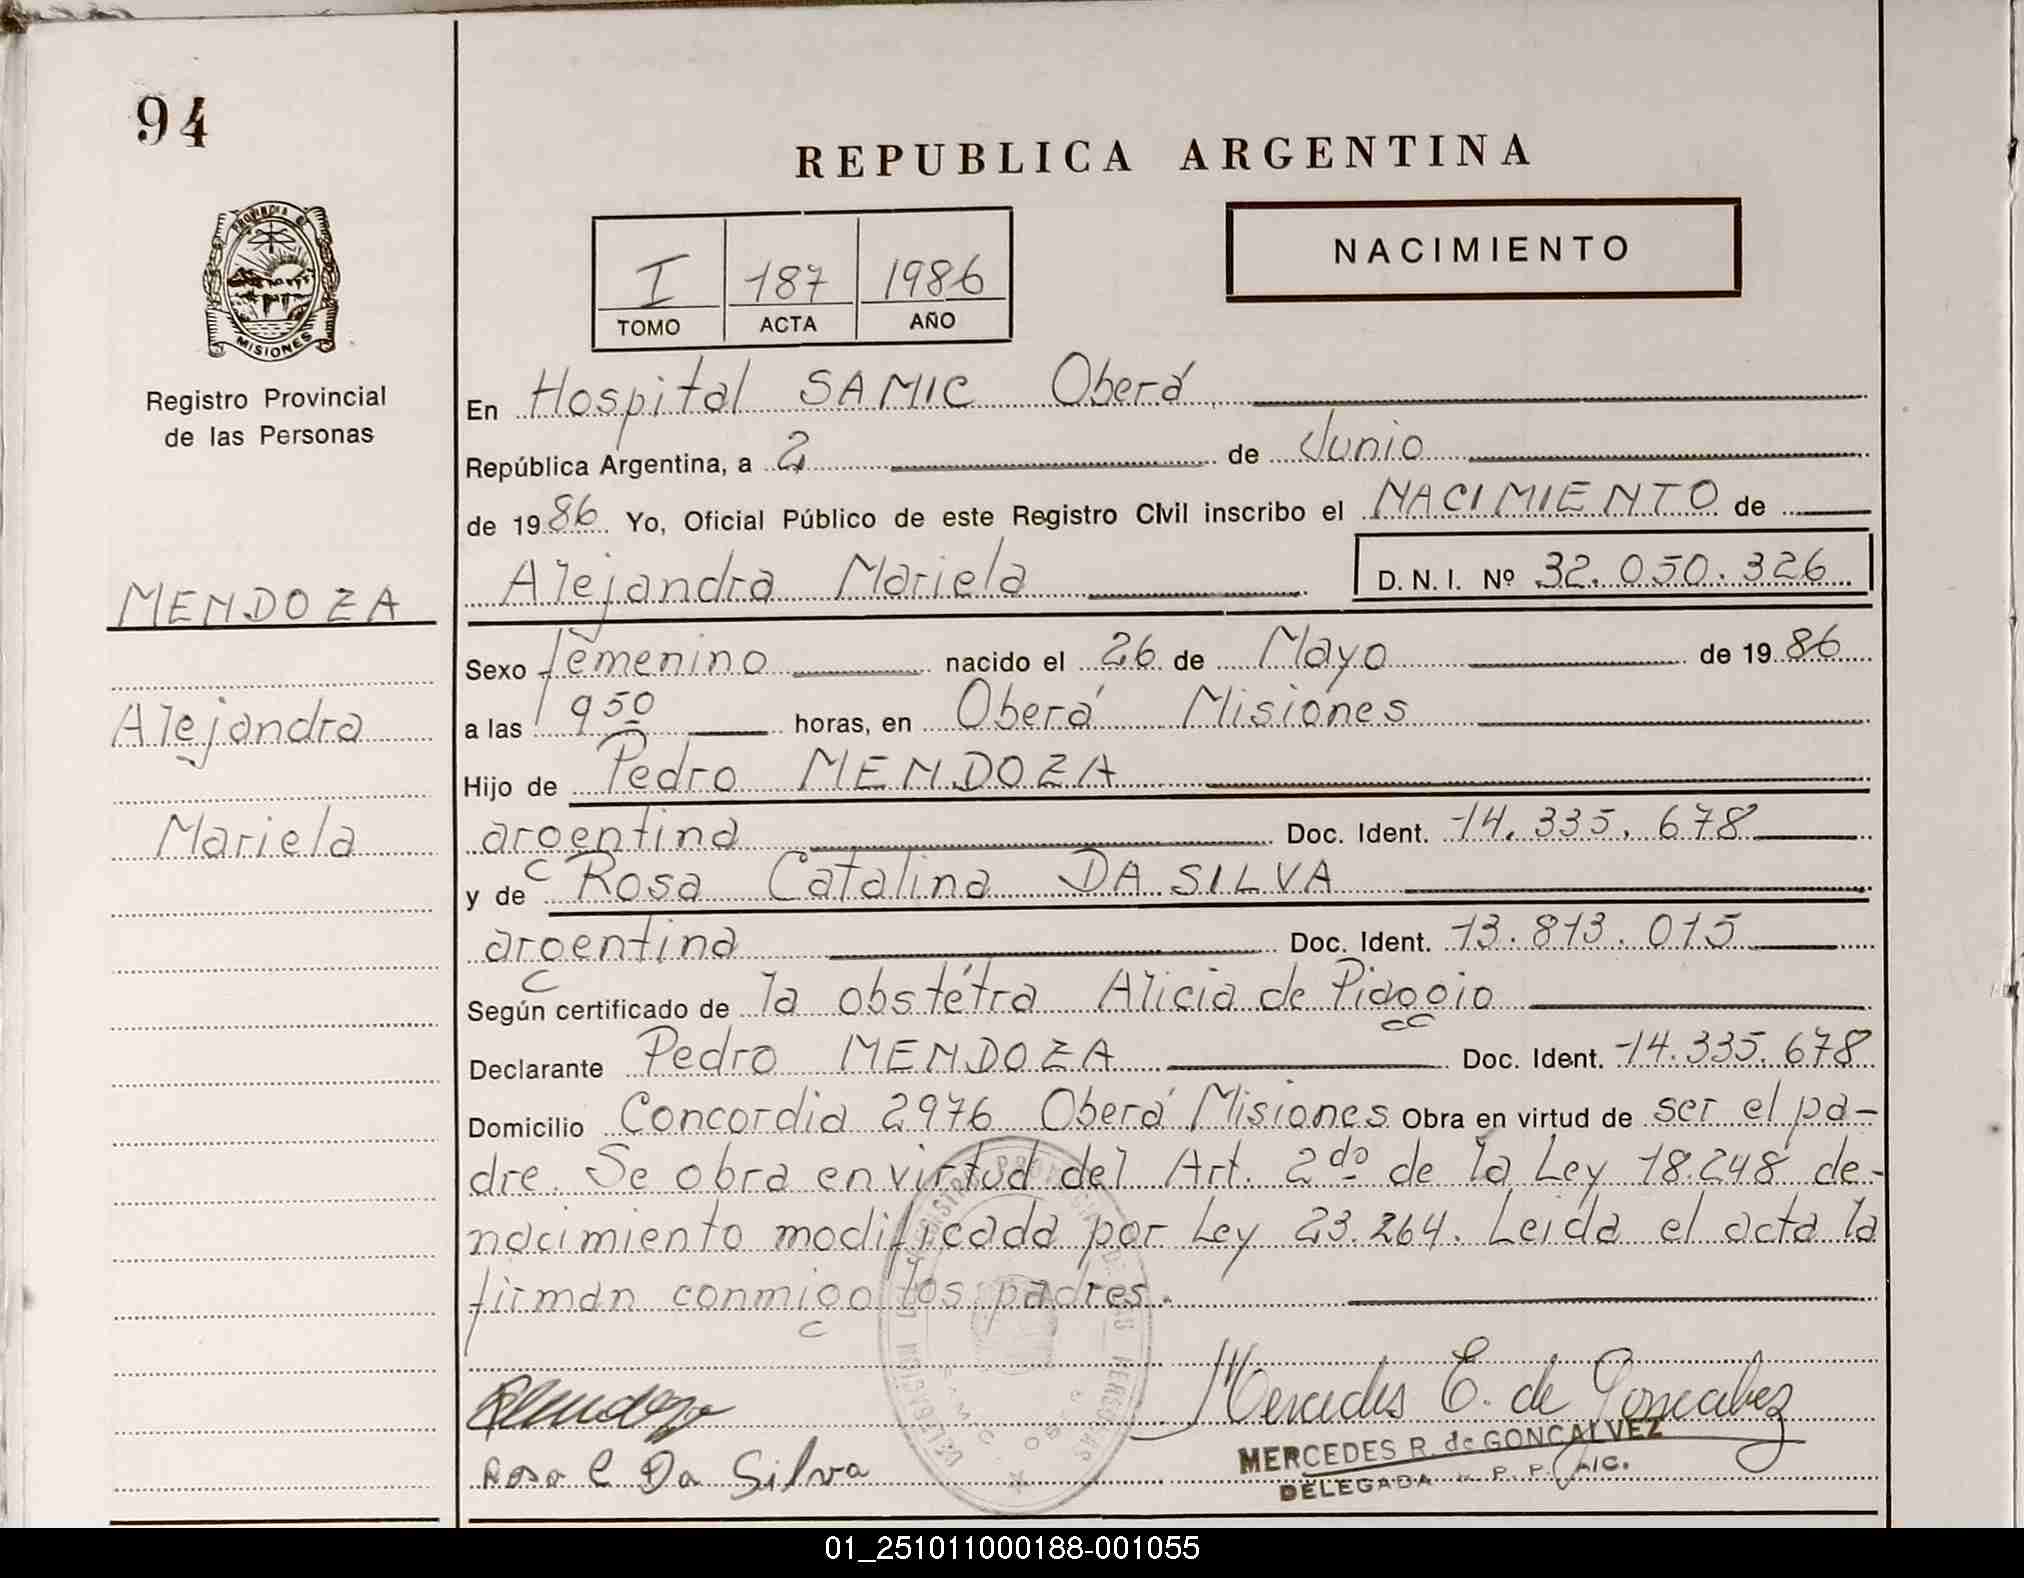 94
REPUBLICA ARGENTINA
PROVINCIA DE
MISIONES
Registro Provincial
de las Personas
I 187 1986
TOMO ACTA AÑO
NACIMIENTO
En Hospital SAMIC Oberá
República Argentina, a 2 de Junio
de 1986 Yo, Oficial Público de este Registro Civil inscribo el NACIMIENTO de
Alejandra Mariela D. N. I. Nº 32.050.326
MENDOZA
Alejandra
Mariela
Sexo femenino nacido el 26 de Mayo de 1986
a las 9 50 horas, en Oberá Misiones
Hijo de Pedro MENDOZA
argentina Doc. Ident. 14.335.678
y de Rosa Catalina DA SILVA
argentina Doc. Ident. 13.813.015
Según certificado de la obstétra Alicia de Piaggio
Declarante Pedro MENDOZA Doc. Ident. 14.335.678
Domicilio Concordia 2976 Oberá Misiones Obra en virtud de ser el pa-
dre. Se obra en virtud del Art. 2do de la Ley 18.248 de-
nacimiento modificada por Ley 23.264. Leida el acta la
firman conmigo los padres.
Mercedes E. de Goncalvez
Rosa C Da Silva
MERCEDES R. de GONCALVEZ
DELEGADA
01_251011000188-001055